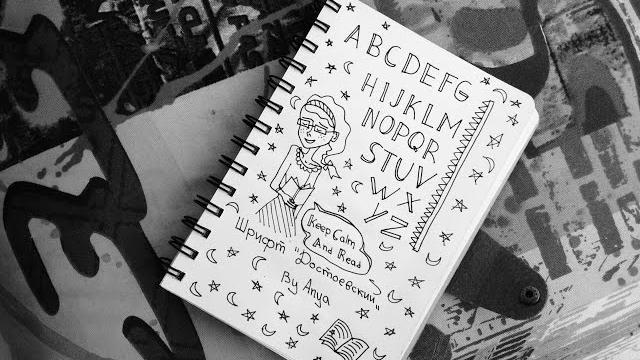 ABCDEFG
HIJKLM
NOPQR
STUV
WX
YZ
Keep Calm
And Read
Шрифт "Достоевский"
By Anya